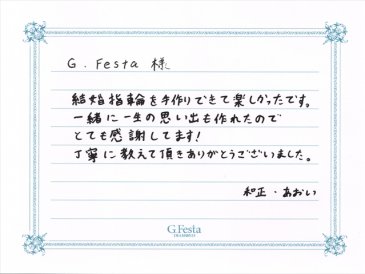 G. Festa 様
結婚指輪を手作りできて楽しかったです。
一緒に一生の思い出も作れたので
とても感謝してます!
丁寧に教えて頂きありがとうございました。
和正・あおい
G.Festa